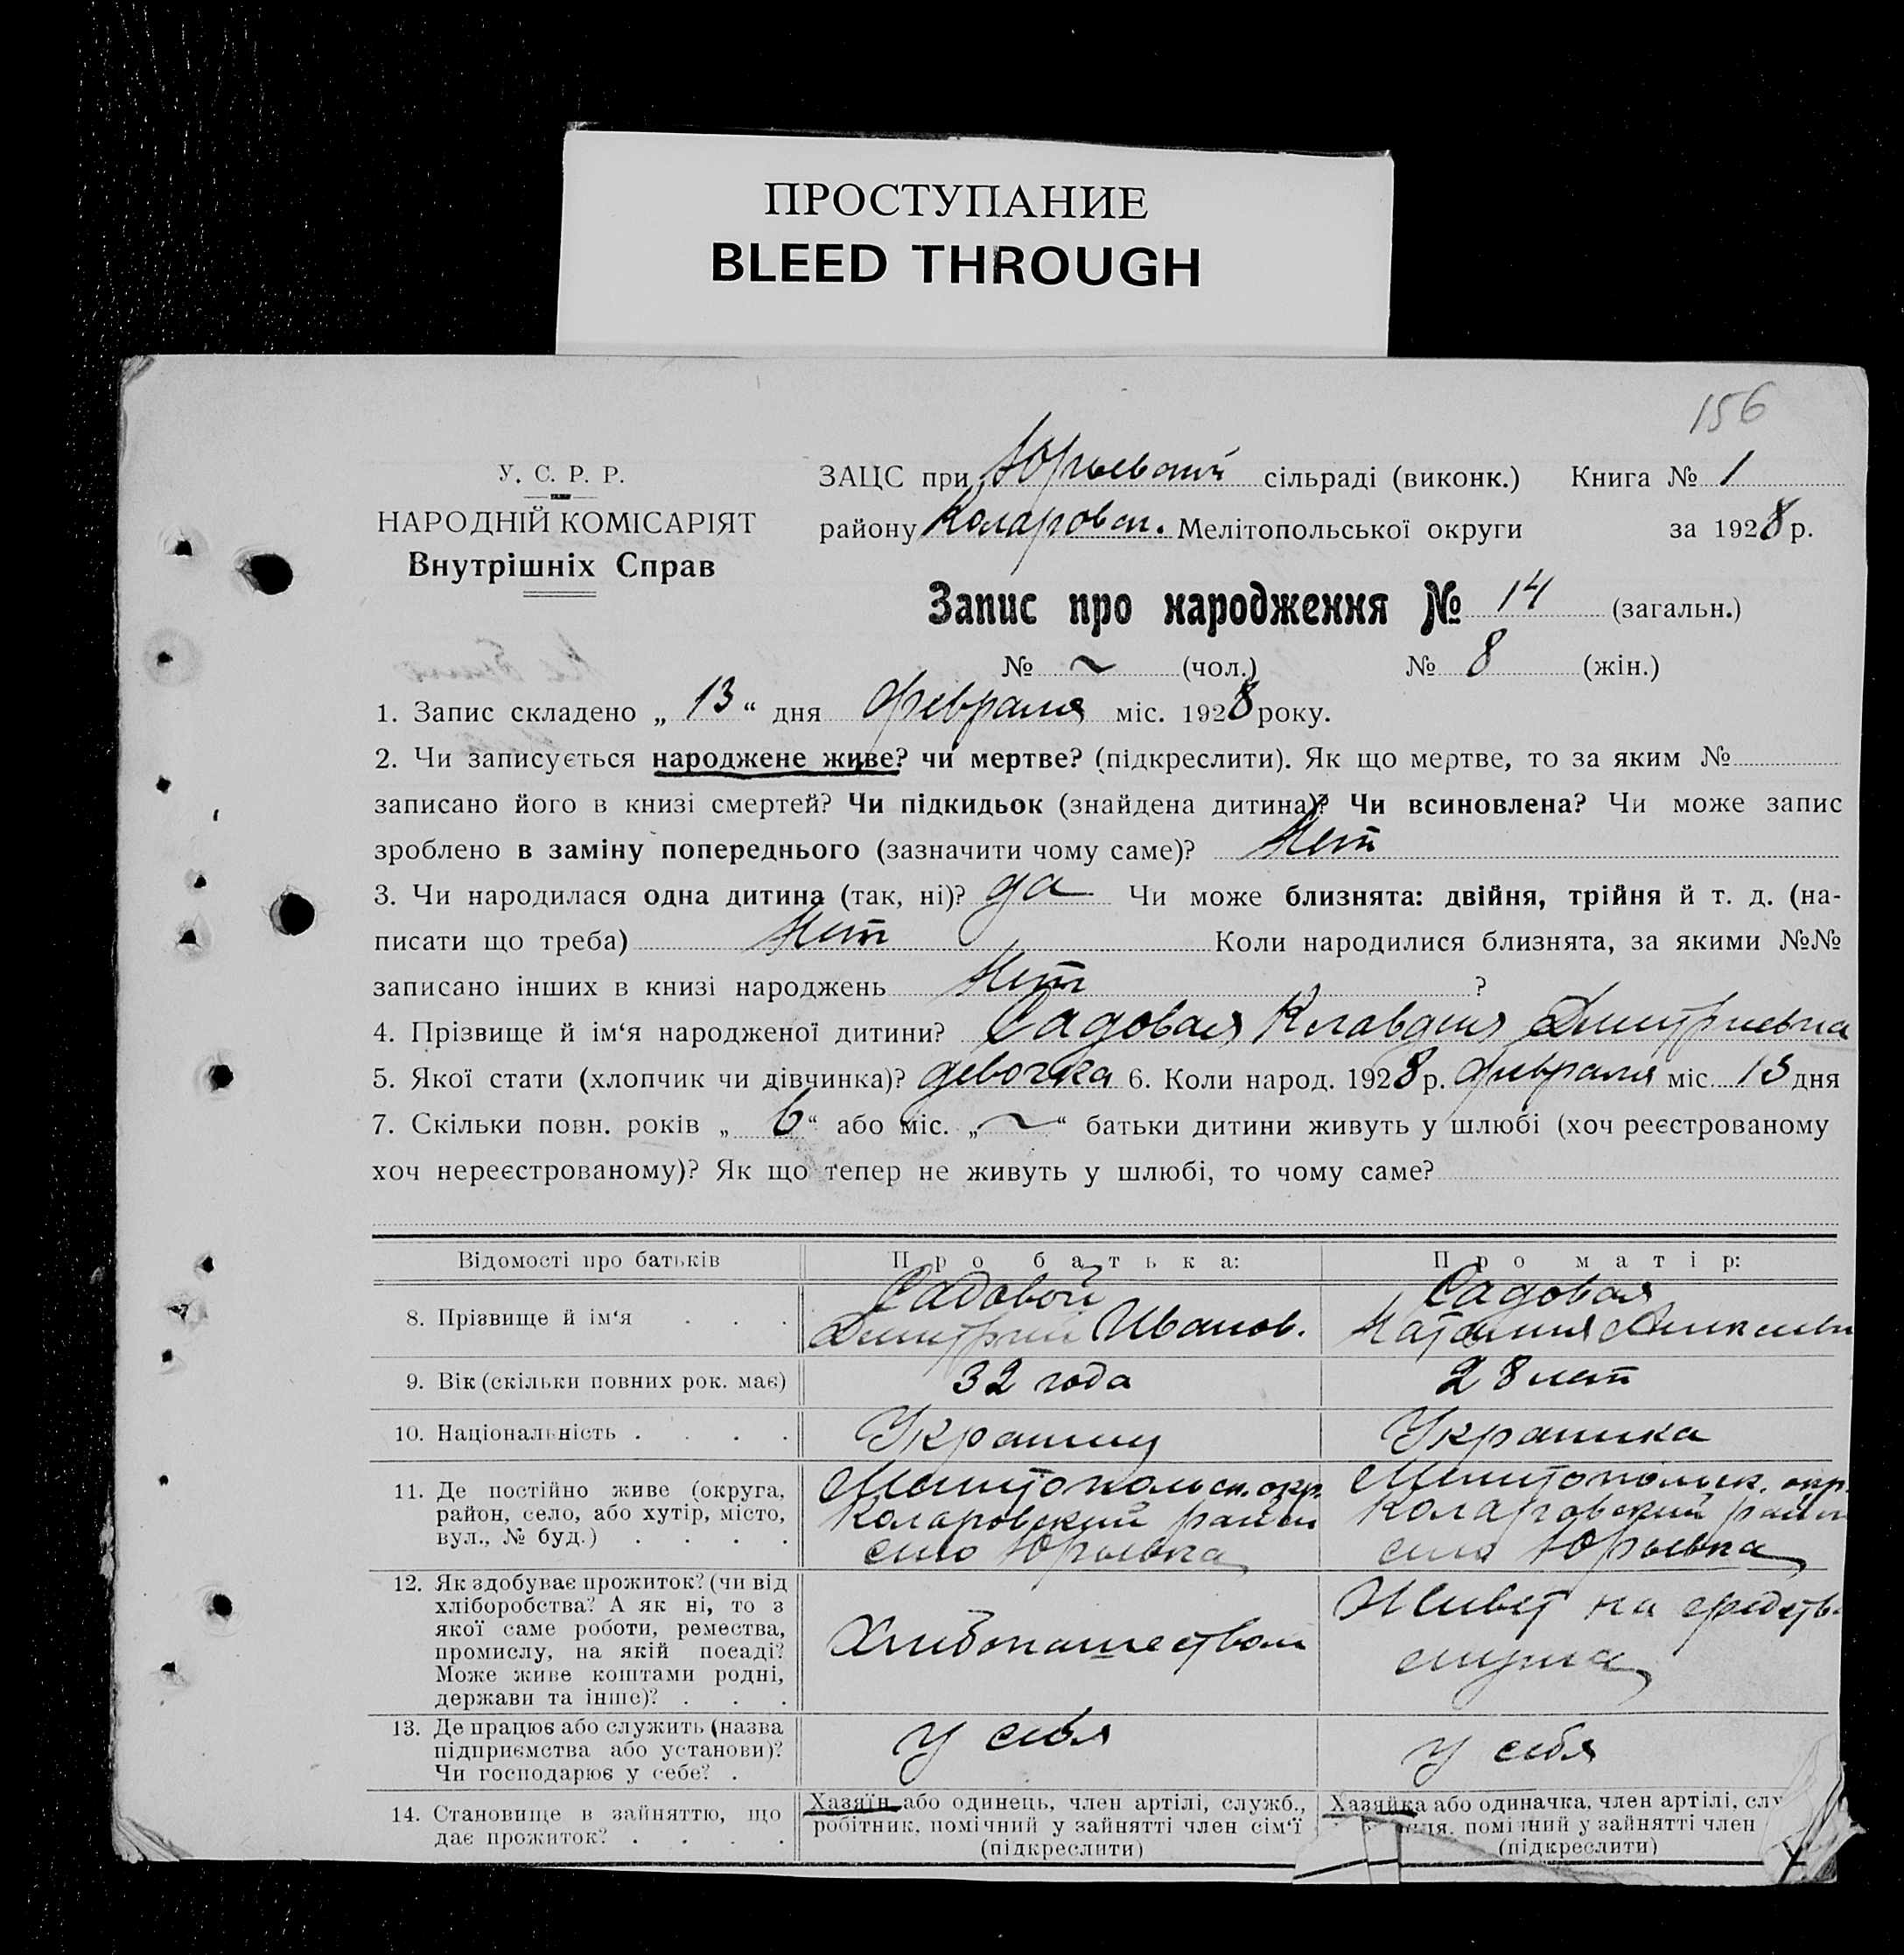 ПРОСТУПАНИЕ
BLEED THROUGH
156
У. С. Р. Р.
НАРОДНІЙ КОМІСАРІЯТ
Внутрішніх Справ
ЗАЦС при Юрьевской сільраді (виконк.) Книга № 1
району Коларовск. Мелітопольської округи за 1928 р.
Запис про народження № 14 (загальн.)
№ ~ (чол.) № 8 (жін.)
1. Запис складено „ 13 “ дня февраля міс. 1928 року.
2. Чи записується народжене живе? чи мертве? (підкреслити). Як що мертве, то за яким №
записано його в книзі смертей? Чи підкидьок (знайдена дитина)? Чи всиновлена? Чи може запис
зроблено в заміну попереднього (зазначити чому саме)? Нет
3. Чи народилася одна дитина (так, ні)? да Чи може близнята: двійня, трійня й т. д. (на-
писати що треба) Нет Коли народилися близнята, за якими №№
записано інших в книзі народжень Нет ?
4. Прізвище й ім‘я народженої дитини? Садовая Клавдия Дмитриевна
5. Якої стати (хлопчик чи дівчинка)? девочка 6. Коли народ. 1928 р. февраля міс 13 дня
7. Скільки повн. років „ 6 “ або міс. „ ~ “ батьки дитини живуть у шлюбі (хоч реєстрованому
хоч нереєстрованому)? Як що тепер не живуть у шлюбі, то чому саме?
Відомості про батьків Про батька: Про матір:
8. Прізвище й ім‘я . . . Садовой Дмитрий Иванов. Садовая Наталия
9. Вік (скільки повних рок. має) 32 года 28 лет
10. Національність . . . . Украинец Украинка
11. Де постійно живе (округа,
район, село, або хутір, місто,
вул., № буд.) . . . .
Мелитопольск. окр.
Коларовский район
село Юрьевка
Мелитопольск. окр.
Коларовский район
село Юрьевка
12. Як здобуває прожиток? (чи від
хліборобства? А як ні, то з
якої саме роботи, ремества,
промислу, на якій посаді?
Може живе коштами родні,
держави та інше)? . . .
Хлибопашеством
Живет на средств.
мужа
13. Де працює або служить (назва
підприємства або установи)?
Чи господарює у себе? .
у себя
у себя
14. Становище в зайняттю, що
дає прожиток? . . . .
Хазяїн або одинець, член артілі, служб.,
робітник, помічний у зайнятті член сім‘ї
(підкреслити)
Хазяйка або одиначка, член артілі, слу
помічний у зайнятті член
(підкреслити)